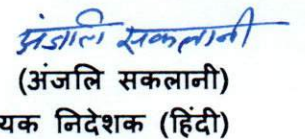 अंजलि सकलानी
(अंजलि सकलानी)
यक निदेशक (हिंदी)